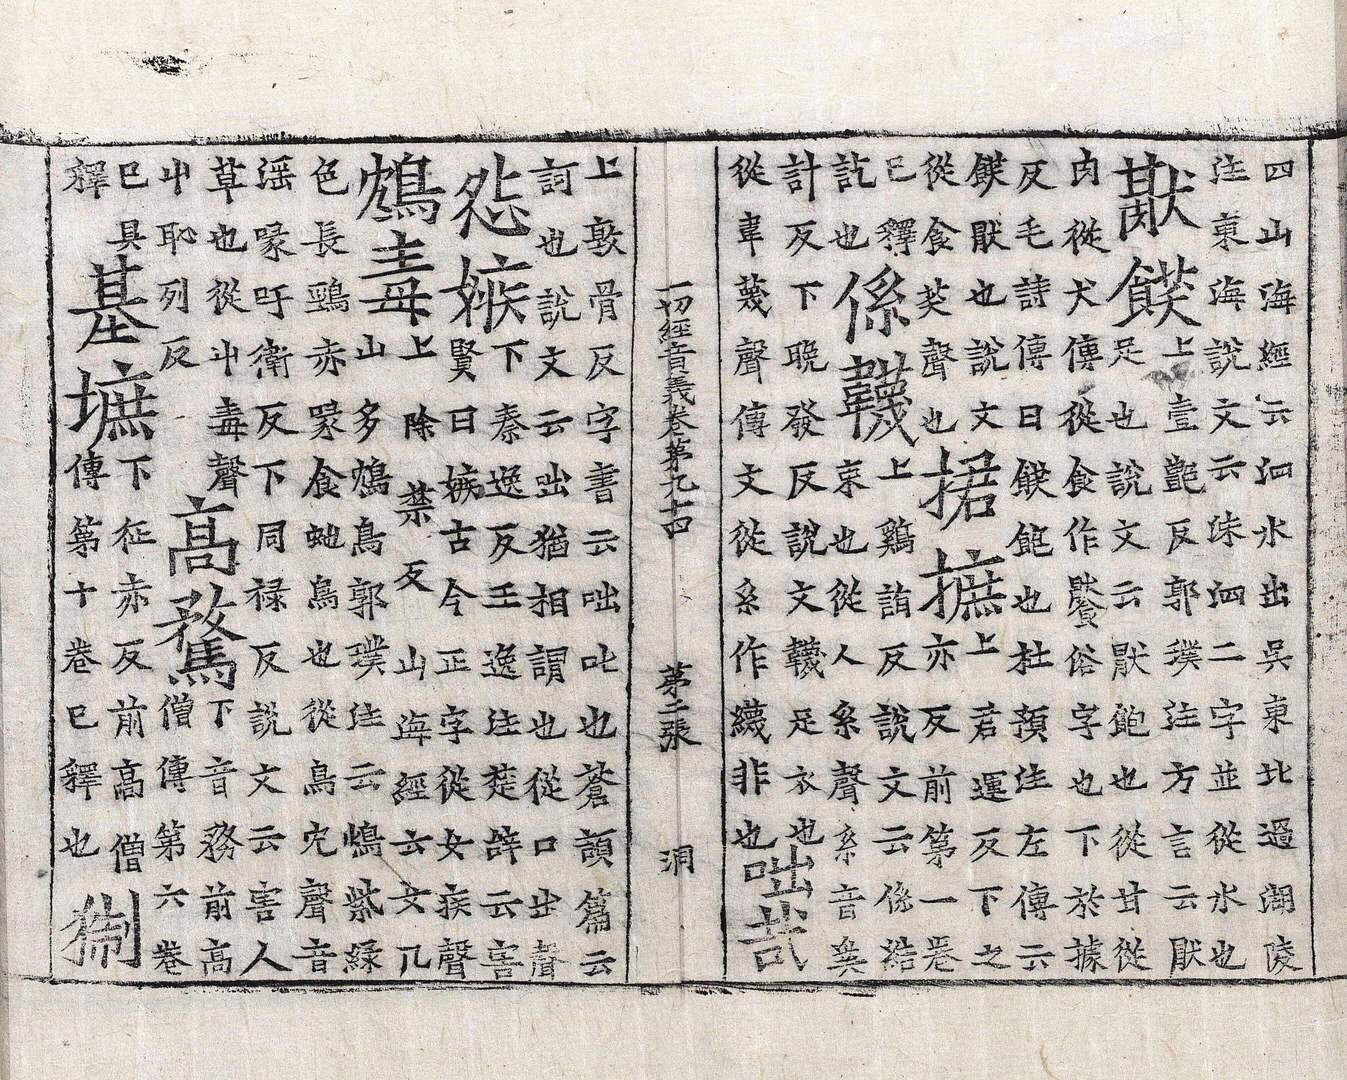 四山海經云泗水出吳東北過湖陵
注東海說文云洙泗二字並從水也
猒飫
上壹豔反郭璞注方言云猒
足也說文云猒飽也從甘從
肉從犬傳從食作饜俗字也下於據
反毛詩傳曰飫飽也杜預注左傳云
飫猒也說文
從食芺聲也
捃摭
上君運反下之
亦反前第一卷
已釋
訖也
係韈
上鷄詣反說文云係潔
束也從人系聲系音奚
計反下晚發反說文韈足衣也
從韋蔑聲傳文從糸作䌩非也
咄哉
一切經音義卷第九十四 第二張 洞
上敦骨反字書云咄叱也蒼頡篇云
訶也說文云咄猶相謂也從口出聲
怨嫉
下秦逸反王逸注楚辭云害
賢曰嫉古今正字從女疾聲
鴆毒
上除禁反山海經云女几
山多鴆鳥郭璞注云鴆紫綠
色長頸赤喙食虵鳥也從鳥冘聲音
淫喙吁衛反下同祿反說文云害人
草也從屮毒聲
屮恥列反
高騖
下音務前高
僧傳第六卷
已具
釋
基墌
下征赤反前高僧
傳第十卷已釋也
猘